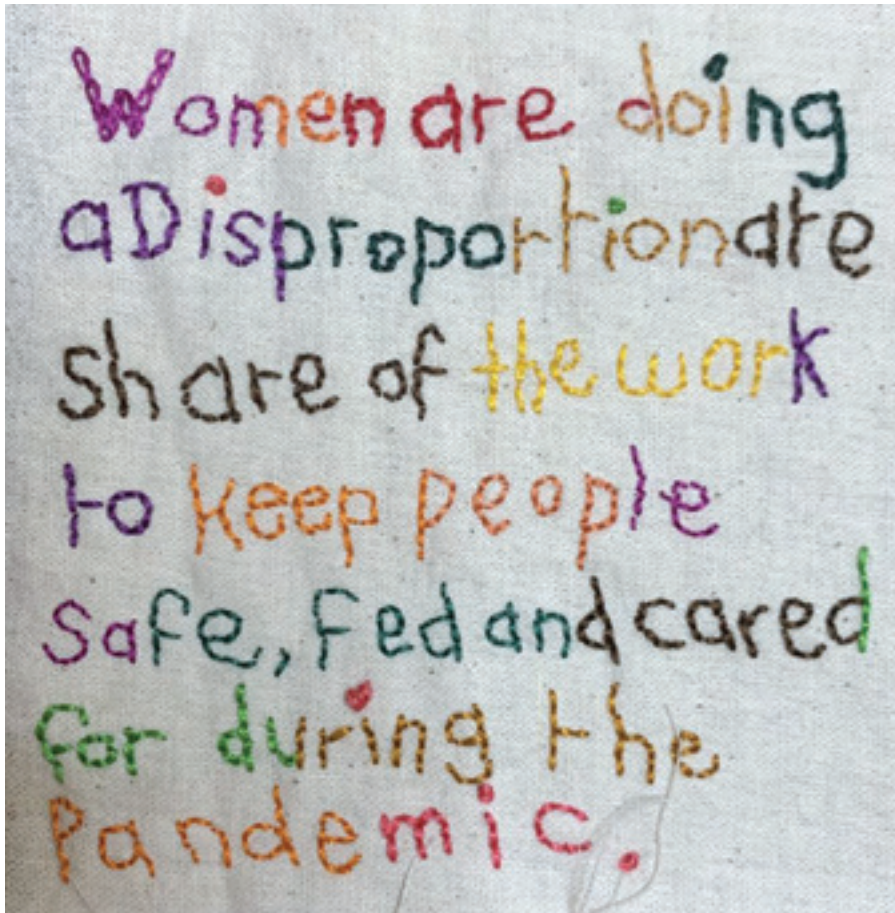 Women are doing
a Disproportionate
share of the work
to keep people
safe, fed and cared
for during the
Pandemic.